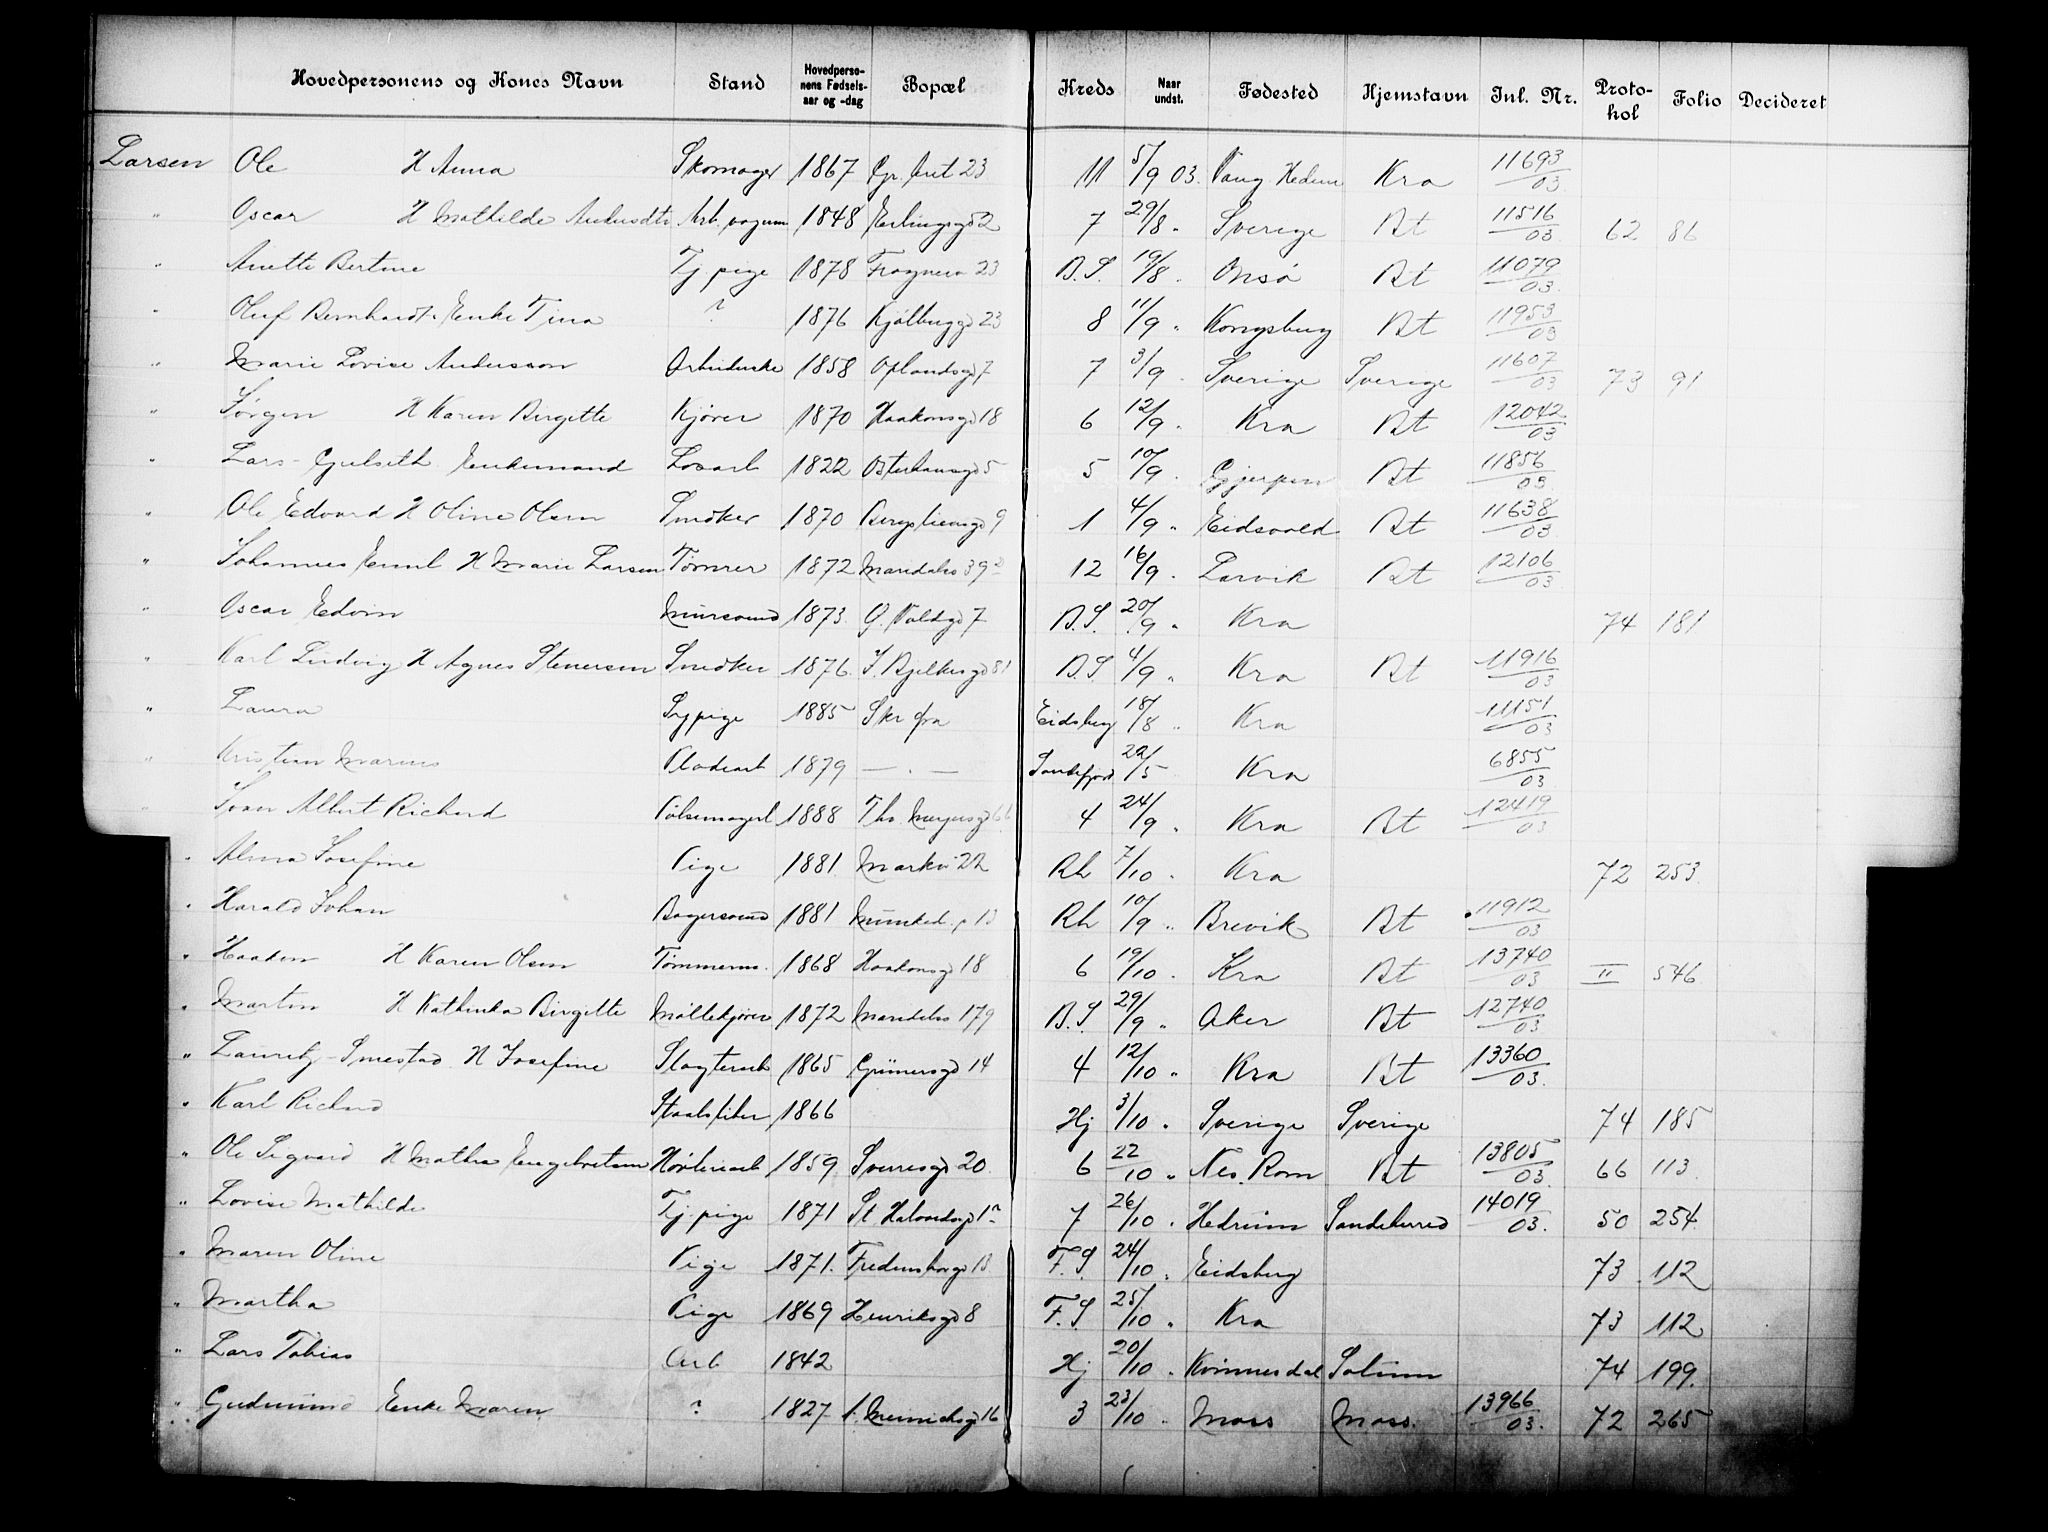 Hovedpersonens og Kones Navn Stand Hovedpersonens Fødselsaar og -dag Bopæl Kreds Naar undst. Fødested Hjemstavn Inl. Nr. Protokol Folio Decideret
Larsen Ole H Anna Skomager 1867 23 11 5/9 03. Vang Kra 11693/03
" Oscar H Mathilde 1848 Erlingsgd 2 7 29/8 " Sverige Bt 11516/03 62 86
" Anette Bertine Tj pige 1878 Frognerv 23 B.S. 19/8 " Onsø Bt 11079/03
" Oluf Bernhardt Enke Tina ? 1876 Kjølbergg 23 8 11/9 " Kongsberg Bt 11953/03
" Marie Lovise Andersson Arbeiderske 1858 Oplandsgd 7 7 3/9 " Sverige Sverige 11607/03 73 91
" Jørgen H Karen Birgitte Kjører 1870 Haakonsgd 18 6 12/9 " Kra Bt 12042/03
" Lars Gulseth Enkemand Losarb 1822 Osterhausgd 5 5 10/9 " Gjerpen Bt 11856/03
" Ole Edvard H Oline Olsen Snedker 1870 Bergsliensgd 9 1 4/9 " Eidsvold Bt 11638/03
" Johannes Emil H Marie Larsen Tømrer 1872 Maridalsv 39 12 16/9 " Larvik Bt 12106/03
" Oscar Edvin Murersvend 1873. 7 B.S. 20/9 " Kra 74 181
" Karl Ludvig H Agnes Stenersen Snedker 1876. J. Bjelkesgd 81 B.S 4/9 " Kra Bt 11916/03
" Laura Sypige 1885 Skr fra Eidsberg 18/8 " Kra 11151/03
" Kristian Marius 1879 — . — Sandefjord 22/5 Kra 6855/03
" Albert Richard Pølsemagerl 1888 Th. Meyersgd 66 4 24/9 " Kra Bt 12419/03
" Alma Josefine Pige 1881 Markv 22 Rh 7/10 " Kra 72 253
" Harald Johan Bagersvend 1881 Munked. 13 Rh 10/9 " Brevik Bt 11912/03
" Haakon H Karen Olsen Tømmerm. 1868 Haakonsgd 18 6 19/10 " Kra Bt 13740/03 II 546
" Martin H Kathinka Birgitte Møllekjører 1872 Maridalsv 179 B.S. 29/9 " Aker Bt 12740/03
" Lauritz Smestad H Josefine Slagterarb 1865 Grünersgd 14 4 12/10 " Kra Bt 13360/03.
" Karl Richard 1866 Hj 3/10 " Sverige Sverige 74 185
" Ole Sigvard H Mathea Engebretsen 1859 Sverresgd 20. 6 22/10 " Nes. Rom Bt 13805/03 66 113
" Lovise Mathilde Tj. pige 1871 St Halvardsgd 1 7 26/10 " Hedrum Sandeherred 14019/03. 50 254.
" Maren Oline Pige 1871. Fredensborgd 13 F.S. 24/10 " Eidsberg 73 112
" Martha Pige 1869 Henriksgd 8 F.S. 25/10 " Kra 73 112
" Lars Tobias Arb 1842 Hj 20/10 " Solum 74 199.
" Gudmund Enke Maren ? 1827 Munchsgd 16 3 23/10 " Moss Moss. 13966/03. 72 265